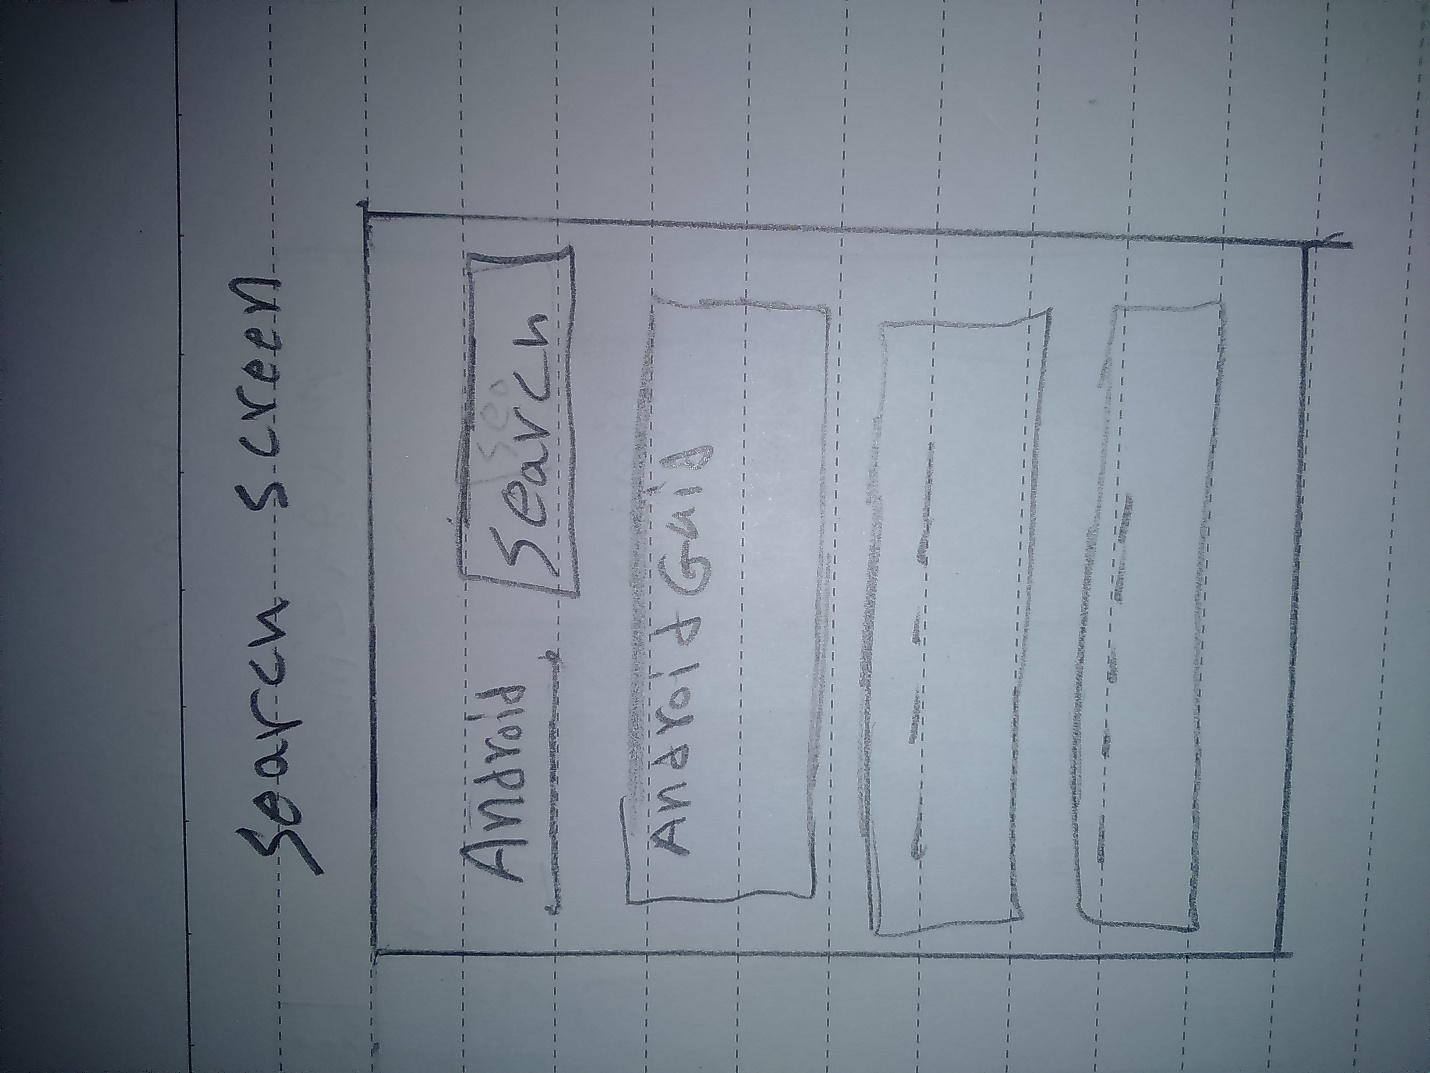 Search screen
Android Search
Android Guid